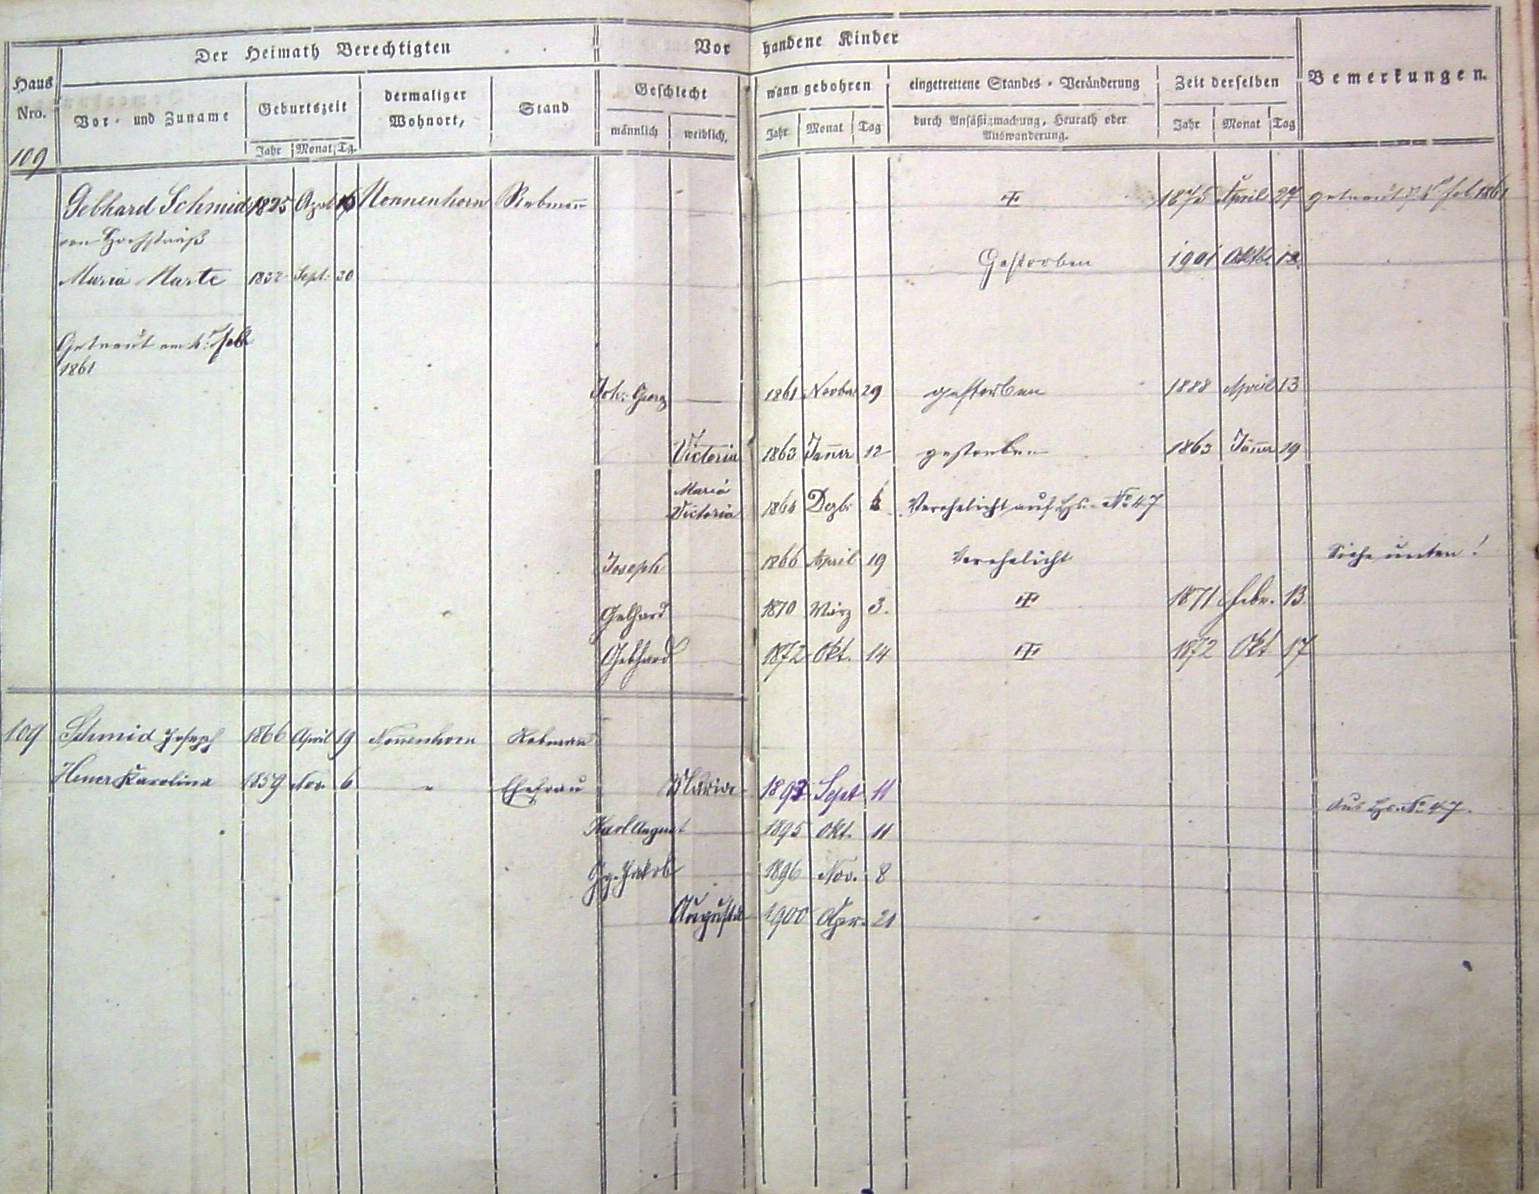 Der Heimath Berechtigten
Vorhandene Kinder
Bemerkungen.
Haus Nro.
Vor- und Zuname
Geburtszeit
Jahr Monat Tg.
dermaliger Wohnort,
Stand
Geschlecht
männlich weiblich,
wann gebohren
Jahr Monat Tag
eingetrettene Standes-Veränderung
durch Ansäßigmachung, Heurath oder
Auswanderung.
Zeit derselben
Jahr Monat Tag
109
Gebhard Schmid 1825 Nonnenhorn Rebmann 1875 April 27 getraut Feb. 1861
von Hochsträß
Maria Marte 1832 Sept. 30 Gestorben 1901 Oktb. 12.
Getraut am 4. Feb
1861
Joh: Georg 1861 Novbr 29 gestorben 1888 April 13
Victoria 1863 Jänner 12 gestorben 1863 Jänner 19
Maria
Victoria 1864 Dezb. 4. Verehelicht auf Hs. No 47
Joseph 1866 April 19 Verehelicht Siehe unten!
Gebhard 1870 März 3. 1871 Febr. 13.
Gebhard 1872 Okt. 14 1872 Okt 17
109 Schmid Joseph 1866 April 19 Nonnenhorn Rebmann
Karolina 1859 Nov. 6 " Ehefrau Maria 1893 Sept 11 Aus Hs. No 47.
Karl August 1895 Okt. 11
Gg. Jakob 1896 Nov. 8
Augusta 1900 Apr. 21